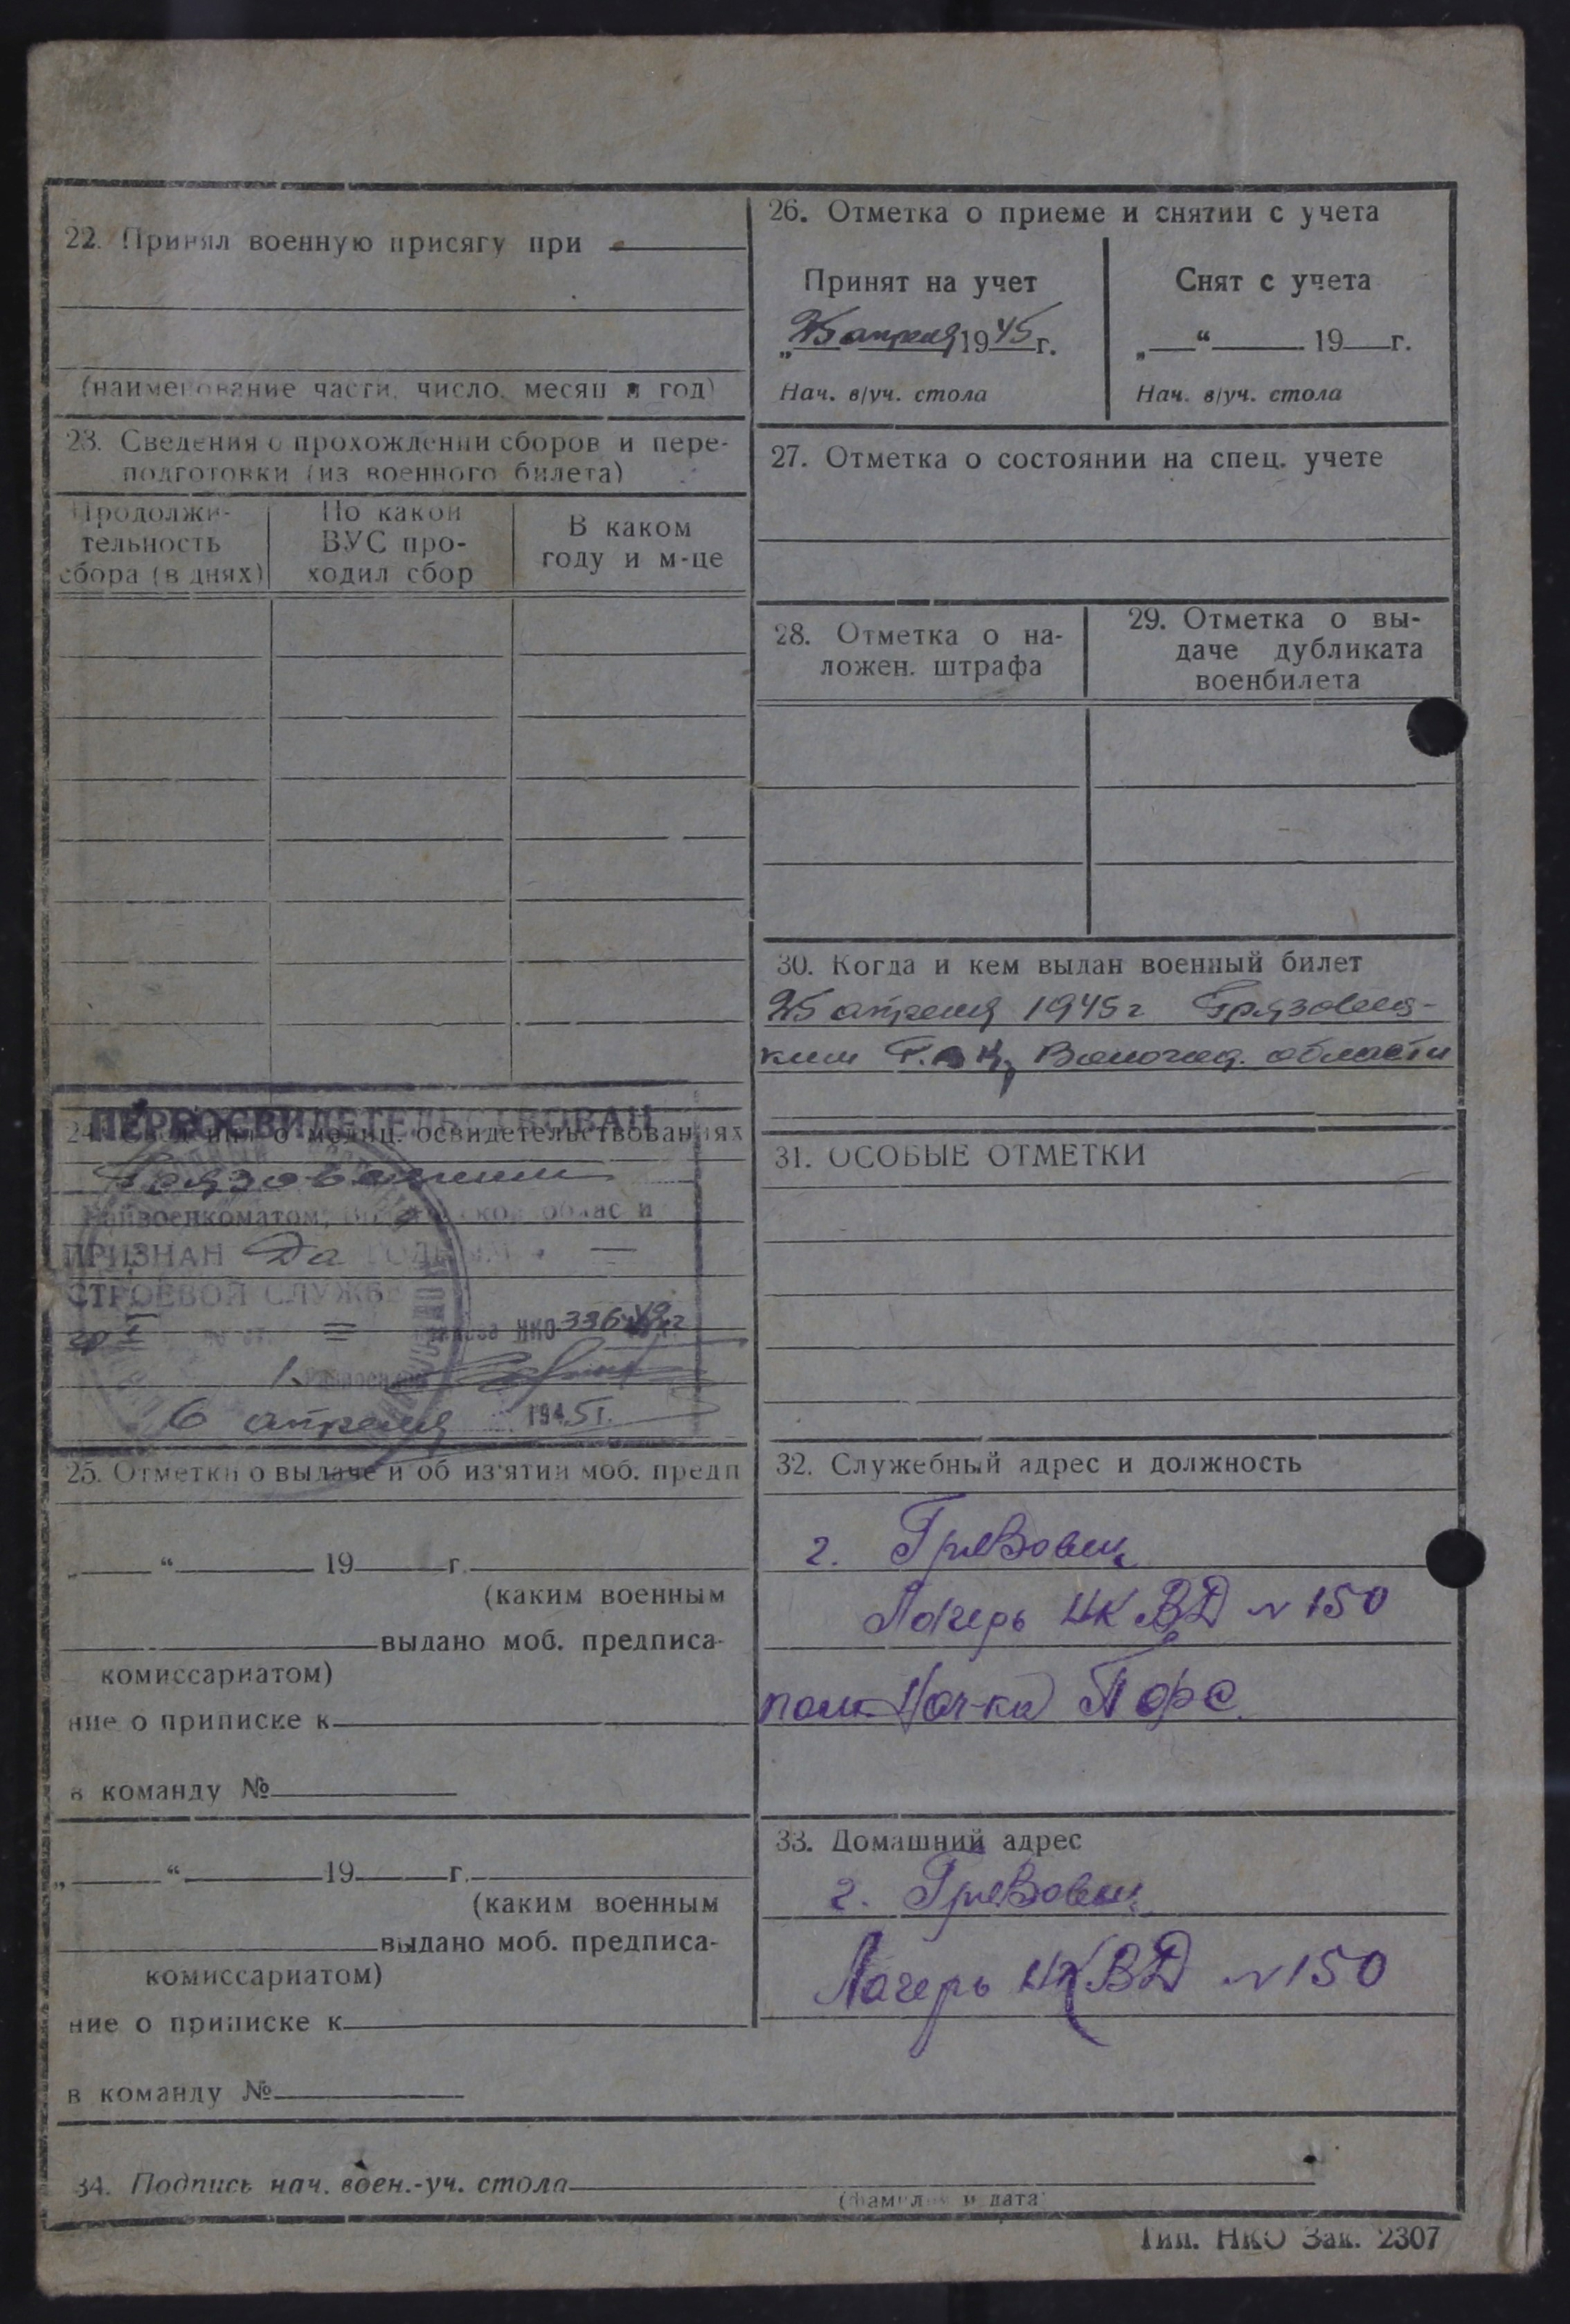 22. Принял военную присягу при
(наименование части, число, месяц и год)
23. Сведения о прохождении сборов и пере-
подготовки (из военного билета)
Продолжи-
тельность
сбора (в днях)
По какой
ВУС про-
ходил сбор
В каком
году и м-це
ПЕРЕОСВИДЕТЕЛЬСТВОВАН
24. о медиц. освидетельствованиях
Грязовецким
Райвоенкоматом, области
ПРИЗНАН Да ГОДНЫМ —
СТРОЕВОЙ СЛУЖБЕ
гр I = НКО 336-42г
6 апреля 1945 г.
25. Отметки о выдаче и об из'ятии моб. предп
„ “ 19 г.
(каким военным
выдано моб. предписа-
комиссариатом)
ние о приписке к
в команду №
„ “ 19 г.
(каким военным
выдано моб. предписа-
комиссариатом)
ние о приписке к
в команду №
26. Отметка о приеме и снятии с учета
Принят на учет
„25 апреля 1945 г.
Нач. в/уч. стола
Снят с учета
„ “ 19 г.
Нач. в/уч. стола
27. Отметка о состоянии на спец. учете
28. Отметка о на-
ложен. штрафа
29. Отметка о вы-
даче дубликата
военбилета
30. Когда и кем выдан военный билет
25 апреля 1945 г Грязовец-
ким Волога. области
31. ОСОБЫЕ ОТМЕТКИ
32. Служебный адрес и должность
г. Грязовец
Лагерь НКВД № 150
пом. Нач-ка
33. Домашний адрес
г. Грязовец
Лагерь НКВД № 150
34. Подпись нач. воен.-уч. стола
(фамилия и дата)
Тип. НКО Зак. 2307